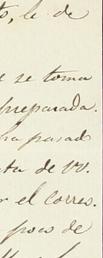 to, le de
se toma
preparada.
ha pasad
ta de VV.
r el correo.
poco de